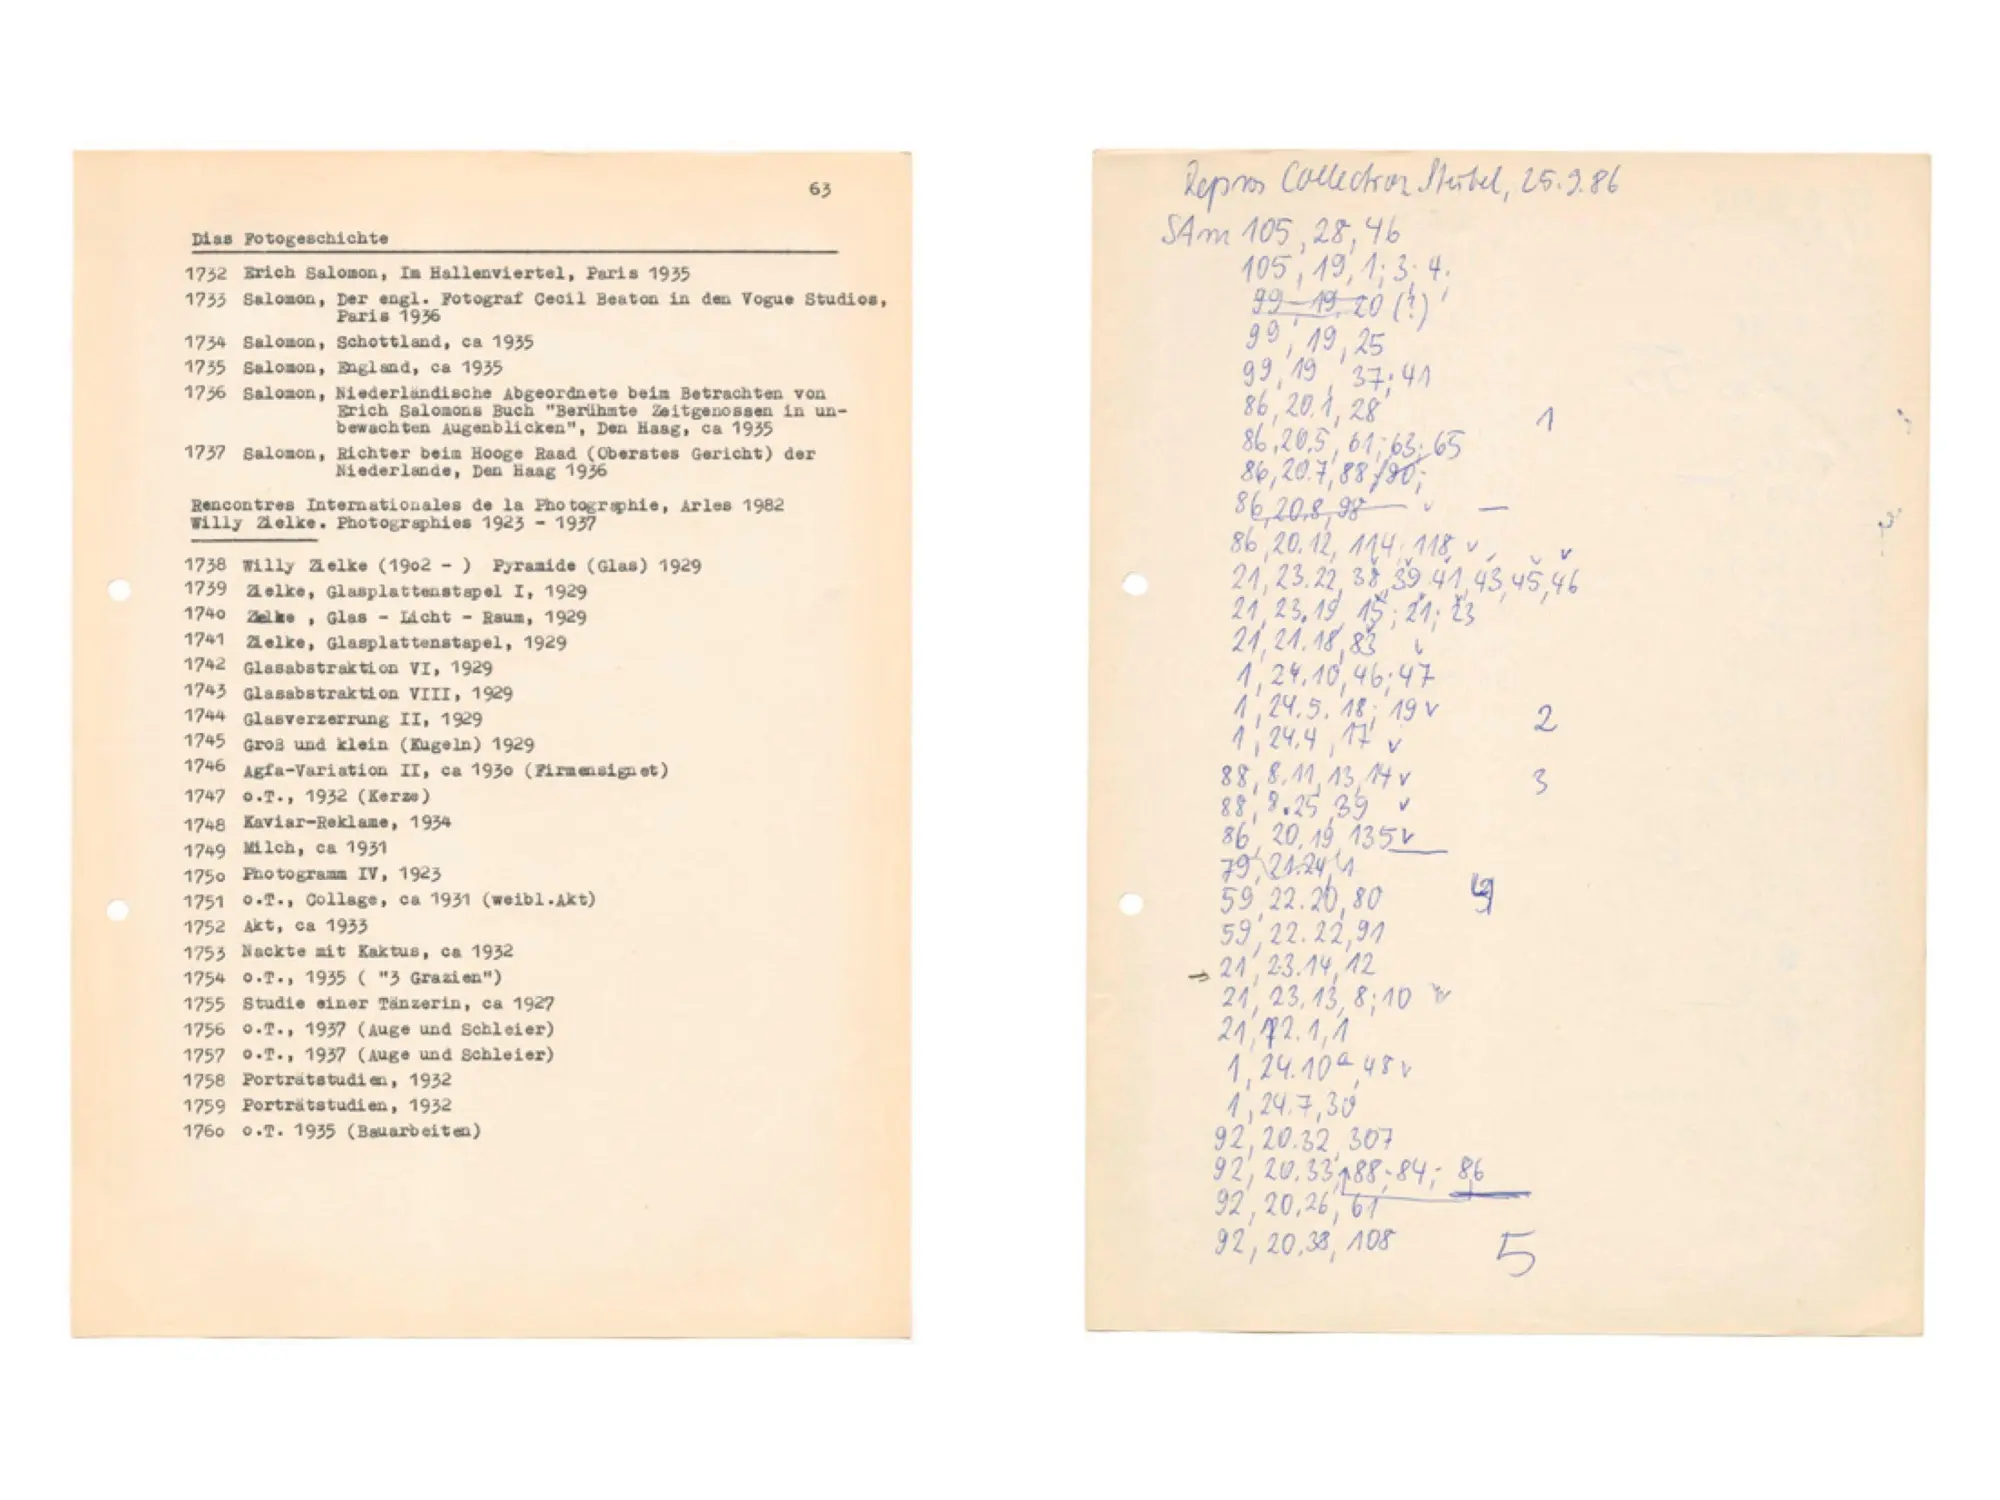 63
Dias Fotogeschichte
1732 Erich Salomon, Im Hallenviertel, Paris 1935
1733 Salomon, Der engl. Fotograf Cecil Beaton in den Vogue Studios,
Paris 1936
1734 Salomon, Schottland, ca 1935
1735 Salomon, England, ca 1935
1736 Salomon, Niederländische Abgeordnete beim Betrachten von
Erich Salomons Buch "Berühmte Zeitgenossen in un-
bewachten Augenblicken", Den Haag, ca 1935
1737 Salomon, Richter beim Hooge Raad (Oberstes Gericht) der
Niederlande, Den Haag 1936
Rencontres Internationales de la Photographie, Arles 1982
Willy Zielke. Photographies 1923 - 1937
1738 Willy Zielke (19o2 - ) Pyramide (Glas) 1929
1739 Zielke, Glasplattenstapel I, 1929
174o Zielke , Glas - Licht - Raum, 1929
1741 Zielke, Glasplattenstapel, 1929
1742 Glasabstraktion VI, 1929
1743 Glasabstraktion VIII, 1929
1744 Glasverzerrung II, 1929
1745 Groß und klein (Kugeln) 1929
1746 Agfa-Variation II, ca 193o (Firmensignet)
1747 o.T., 1932 (Kerze)
1748 Kaviar-Reklame, 1934
1749 Milch, ca 1931
175o Photogramm IV, 1923
1751 o.T., Collage, ca 1931 (weibl.Akt)
1752 Akt, ca 1933
1753 Nackte mit Kaktus, ca 1932
1754 o.T., 1935 ( "3 Grazien")
1755 Studie einer Tänzerin, ca 1927
1756 o.T., 1937 (Auge und Schleier)
1757 o.T., 1937 (Auge und Schleier)
1758 Porträtstudien, 1932
1759 Porträtstudien, 1932
176o o.T. 1935 (Bauarbeiten)
Repros Collection Stübel, 25.9.86
SAm 105, 28, 46
105, 19, 1; 3; 4;
99, 19, 20 (?)
99, 19, 25
99, 19, 37; 41
86, 20.1, 28 1
86, 20.5, 61; 63; 65
86, 20.7, 88, 90;
86, 20.8, 98 —
86, 20.12, 114; 118
21, 23.22, 38, 39, 41, 43, 45, 46
21, 23.19, 15; 21; 23
21, 21.18, 83
1, 24.10, 46; 47
1, 24.5. 18; 19 2
1, 24.4, 17
88, 8.11, 13, 14 3
88, 8.25, 39
86, 20.19, 135
79, 21.24, 1
59, 22.20, 80
59, 22.22, 91
21, 23.14, 12
21, 23.13, 8; 10
21, 2.1, 1
1, 24.10a, 48
1, 24.7, 30
92, 20.32, 307
92, 20.33, 88; 84; 86
92, 20.26, 61
92, 20.38, 108
5